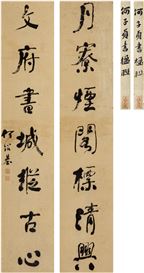 月寮煙閣標清興
文府書城縱古心
何紹基
何子貞書楹联
何子貞書楹联